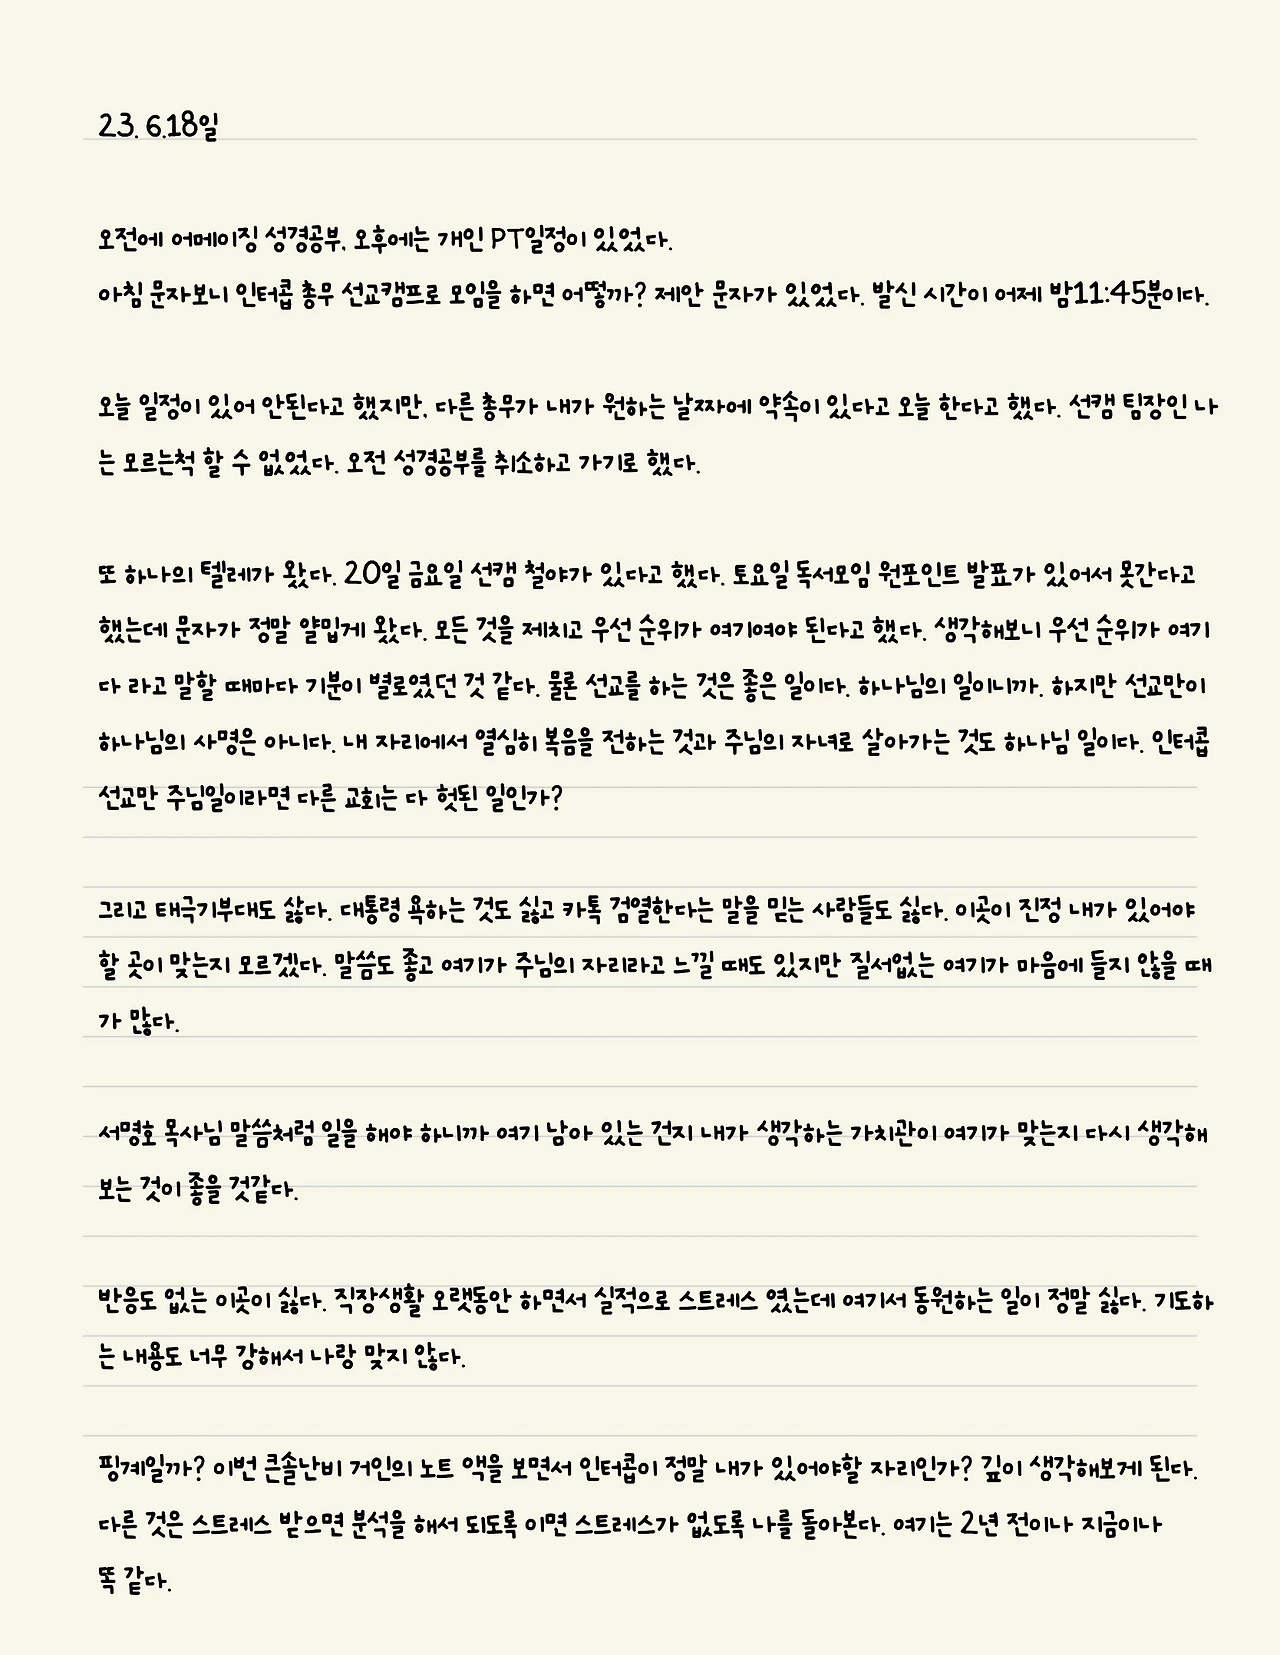 23. 6.18일
오전에 어메이징 성경공부, 오후에는 개인 PT일정이 있었다.
아침 문자보니 인터콥 총무 선교캠프로 모임을 하면 어떻까? 제안 문자가 있었다. 발신 시간이 어제 밤11:45분이다.
오늘 일정이 있어 안된다고 했지만, 다른 총무가 내가 원하는 날짜에 약속이 있다고 오늘 한다고 했다. 선캠 팀장인 나
는 모르는척 할 수 없었다. 오전 성경공부를 취소하고 가기로 했다.
또 하나의 텔레가 왔다. 20일 금요일 선캠 철야가 있다고 했다. 토요일 독서모임 원포인트 발표가 있어서 못간다고
했는데 문자가 정말 얄밉게 왔다. 모든 것을 제치고 우선 순위가 여기여야 된다고 했다. 생각해보니 우선 순위가 여기
다 라고 말할 때마다 기분이 별로였던 것 같다. 물론 선교를 하는 것은 좋은 일이다. 하나님의 일이니까. 하지만 선교만이
하나님의 사명은 아니다. 내 자리에서 열심히 복음을 전하는 것과 주님의 자녀로 살아가는 것도 하나님 일이다. 인터콥
선교만 주님일이라면 다른 교회는 다 헛된 일인가?
그리고 태극기부대도 싫다. 대통령 욕하는 것도 싫고 카톡 검열한다는 말을 믿는 사람들도 싫다. 이곳이 진정 내가 있어야
할 곳이 맞는지 모르겠다. 말씀도 좋고 여기가 주님의 자리라고 느낄 때도 있지만 질서없는 여기가 마음에 들지 않을 때
가 많다.
서명호 목사님 말씀처럼 일을 해야 하니까 여기 남아 있는 건지 내가 생각하는 가치관이 여기가 맞는지 다시 생각해
보는 것이 좋을 것같다.
반응도 없는 이곳이 싫다. 직장생활 오랫동안 하면서 실적으로 스트레스 였는데 여기서 동원하는 일이 정말 싫다. 기도하
는 내용도 너무 강해서 나랑 맞지 않다.
핑계일까? 이번 큰솔난비 거인의 노트 액을 보면서 인터콥이 정말 내가 있어야할 자리인가? 깊이 생각해보게 된다.
다른 것은 스트레스 받으면 분석을 해서 되도록 이면 스트레스가 없도록 나를 돌아본다. 여기는 2년 전이나 지금이나
똑 같다.